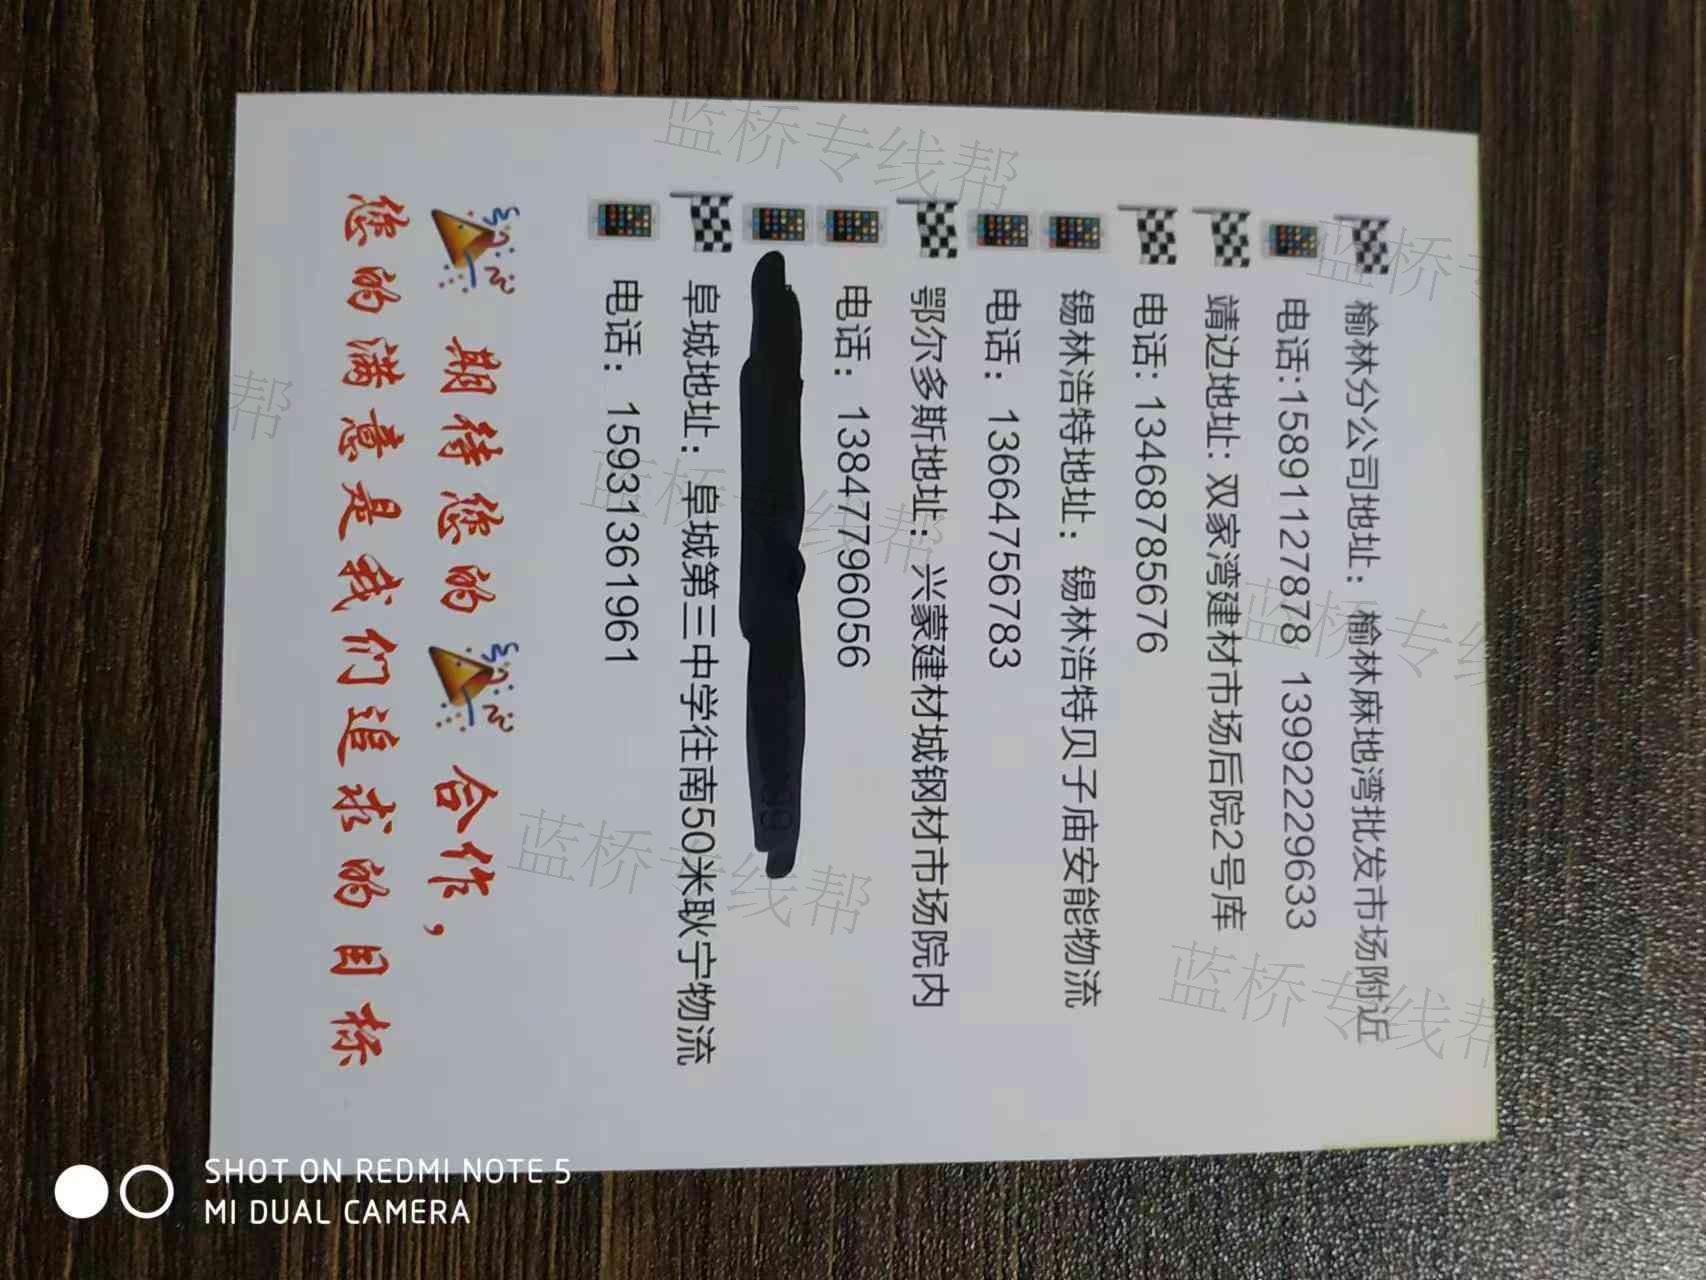 榆林分公司地址：榆林麻地湾批发市场附近
电话:15891127878 13992229633
靖边地址: 双家湾建材市场后院2号库
电话: 13468785676
锡林浩特地址：锡林浩特贝子庙安能物流
电话：13664756783
鄂尔多斯地址：兴蒙建材城钢材市场院内
电话：13847796056
阜城地址：阜城第三中学往南50米耿宁物流
电话：15931361961
期待您的合作，
您的满意是我们追求的目标
蓝桥专线帮
蓝桥专
蓝桥专线
蓝桥专线帮
蓝桥专线帮
蓝桥专线帮
帮
SHOT ON REDMI NOTE 5
MI DUAL CAMERA